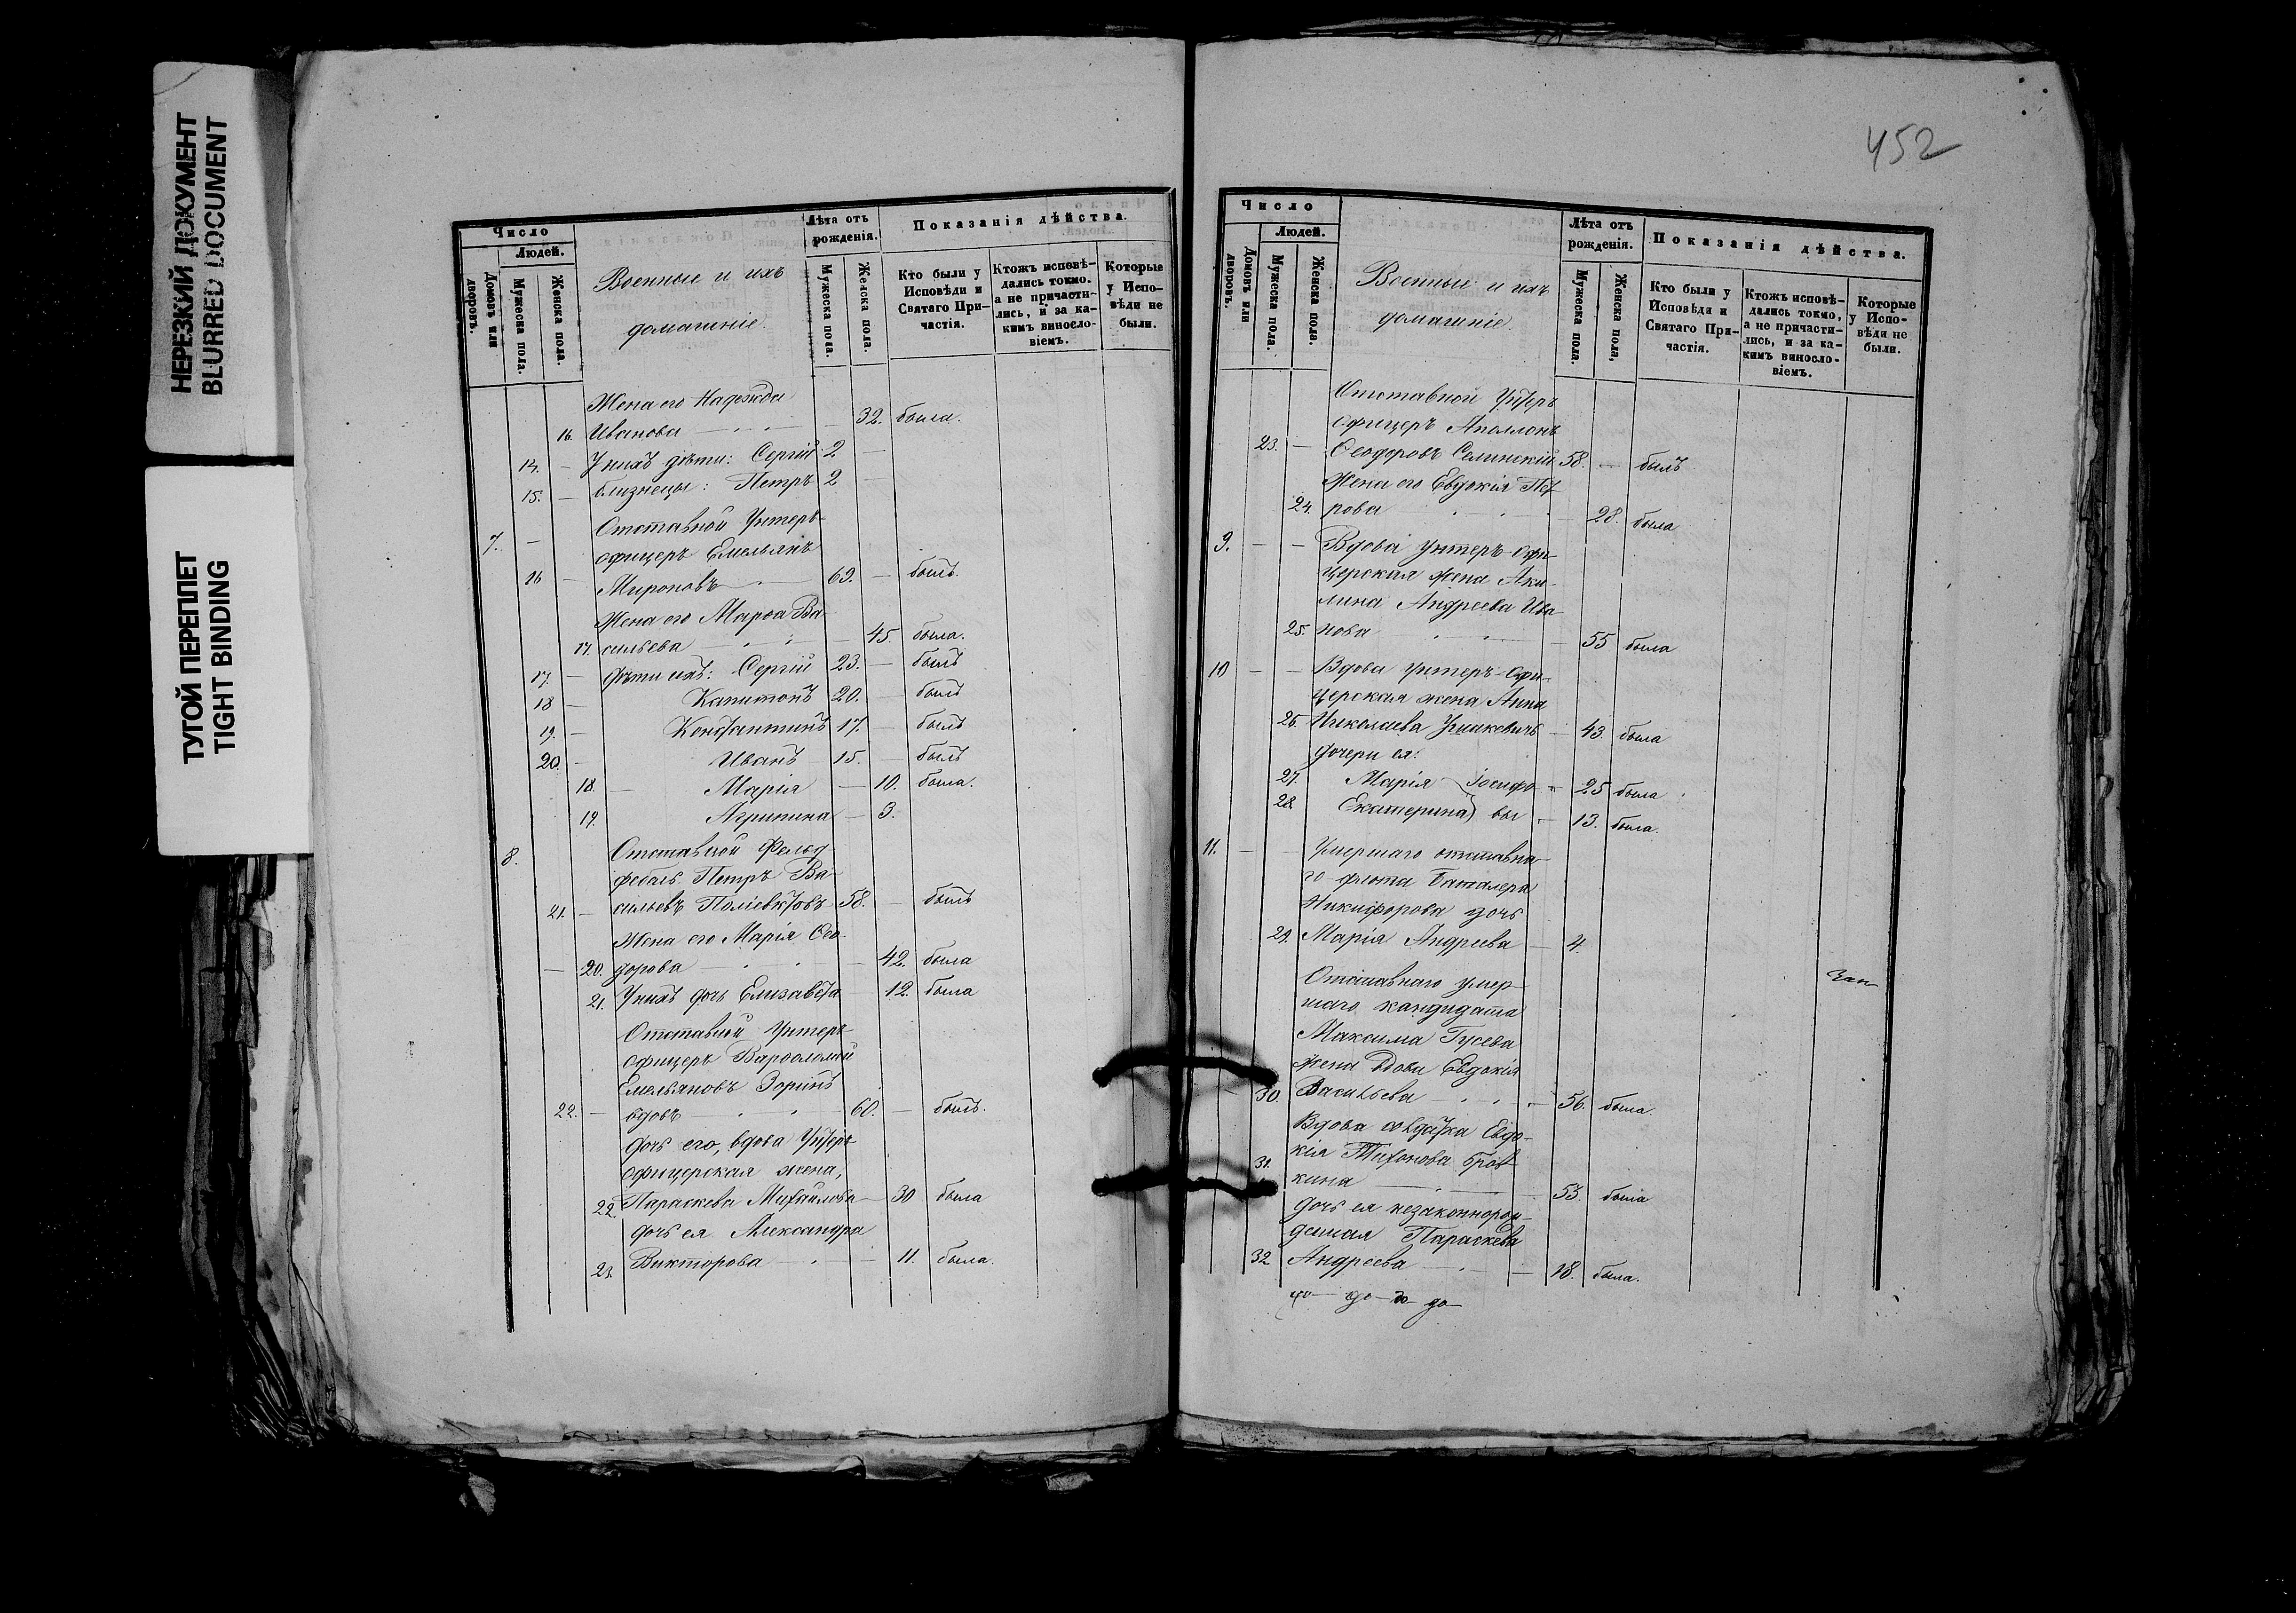 НЕРЕЗКИЙ ДОКУМЕНТ
BLURRED DOCUMENT
ТУГОЙ ПЕРЕПЛЕТ
TIGHT BINDING
Число
Людей.
Домовъ или дворовъ.
Мужеска пола.
Женска пола.
Военные и ихъ
домашніе.
Лѣта отъ рожденія.
Мужеска пола.
Женска пола.
Показанія дѣйства.
Кто были у Исповѣди и Святаго Причастія.
Ктожъ исповѣдались токмо, а не причастились, и за какимъ винословіемъ.
Которые у Исповѣди не были.
Жена его Надежда
16. Иванова — 32. была.
14. — У нихъ дѣти: Сергій 2 —
15. — близнецы: Петръ 2 —
7. — Отставной Унтеръ-
офицеръ Емельянъ
16 — Мироновъ — 69. — былъ.
Жена его Марѳа Ва
17. сильева — 45. была.
17. — Дѣти ихъ: Сергій 23. — былъ
18 — Капитонъ 20. — былъ
19. — Константинъ 17. — былъ
20. — Иванъ 15. — былъ
18. — Марія — 10. была.
19. Агрипина — 3.
8. Отставной Фельд
фебель Петръ Ва
21. — сильевъ Поліевктовъ 58. — былъ
Жена его Марія Ѳео
— 20. дорова — 42. была
21. У нихъ дочь Елизавета — 12. была
Отставной Унтеръ-
офицеръ Варѳоломей
Емельяновъ Зоринъ
22. — вдовъ 60. — былъ.
Дочь его, вдова Унтеръ
офицерская жена,
22. Параскева Михайлова — 30 была
Дочь ея Александра
23. Викторова — 11. была.
452
Число
Людей.
Домовъ или дворовъ.
Мужеска пола.
Женска пола.
Военные и ихъ
домашніе.
Лѣта отъ рожденія.
Мужеска пола.
Женска пола,
Показанія дѣйства.
Кто были у Исповѣди и Святаго Причастія.
Ктожъ исповѣдались токмо, а не причастились, и за какимъ винословіемъ.
Которые у Исповѣди не были.
Отставной Унтеръ
офицеръ Аполлонъ
23. — Ѳеодоровъ Селинскій 58. — былъ
Жена его Евдокія Пет
24. рова — 28. была
9. — — Вдова унтеръ-офи-
церская жена Аки-
лина Андреева Ива
25. нова — 55 была
10 — — Вдова унтеръ-офи-
церская жена Анна
26. Николаева — 43. была
дочери ея:
27. Марія } Іосифо- 25 была
28. Екатерина } вы 13. была.
11. — — Умершаго отставна-
го флота Баталера
Никифорова дочь
29. Марія Андреева — 4.
Отставнаго умер-
шаго кандидата
Максима Гусева
жена вдова Евдокія
30. Васильева — 56. была.
Вдова солдатка Евдо-
31. кія Тихонова Бров
кина — 53. была
Дочь ея незаконнорож-
денная Параскева
32 Андреева — 18. была.